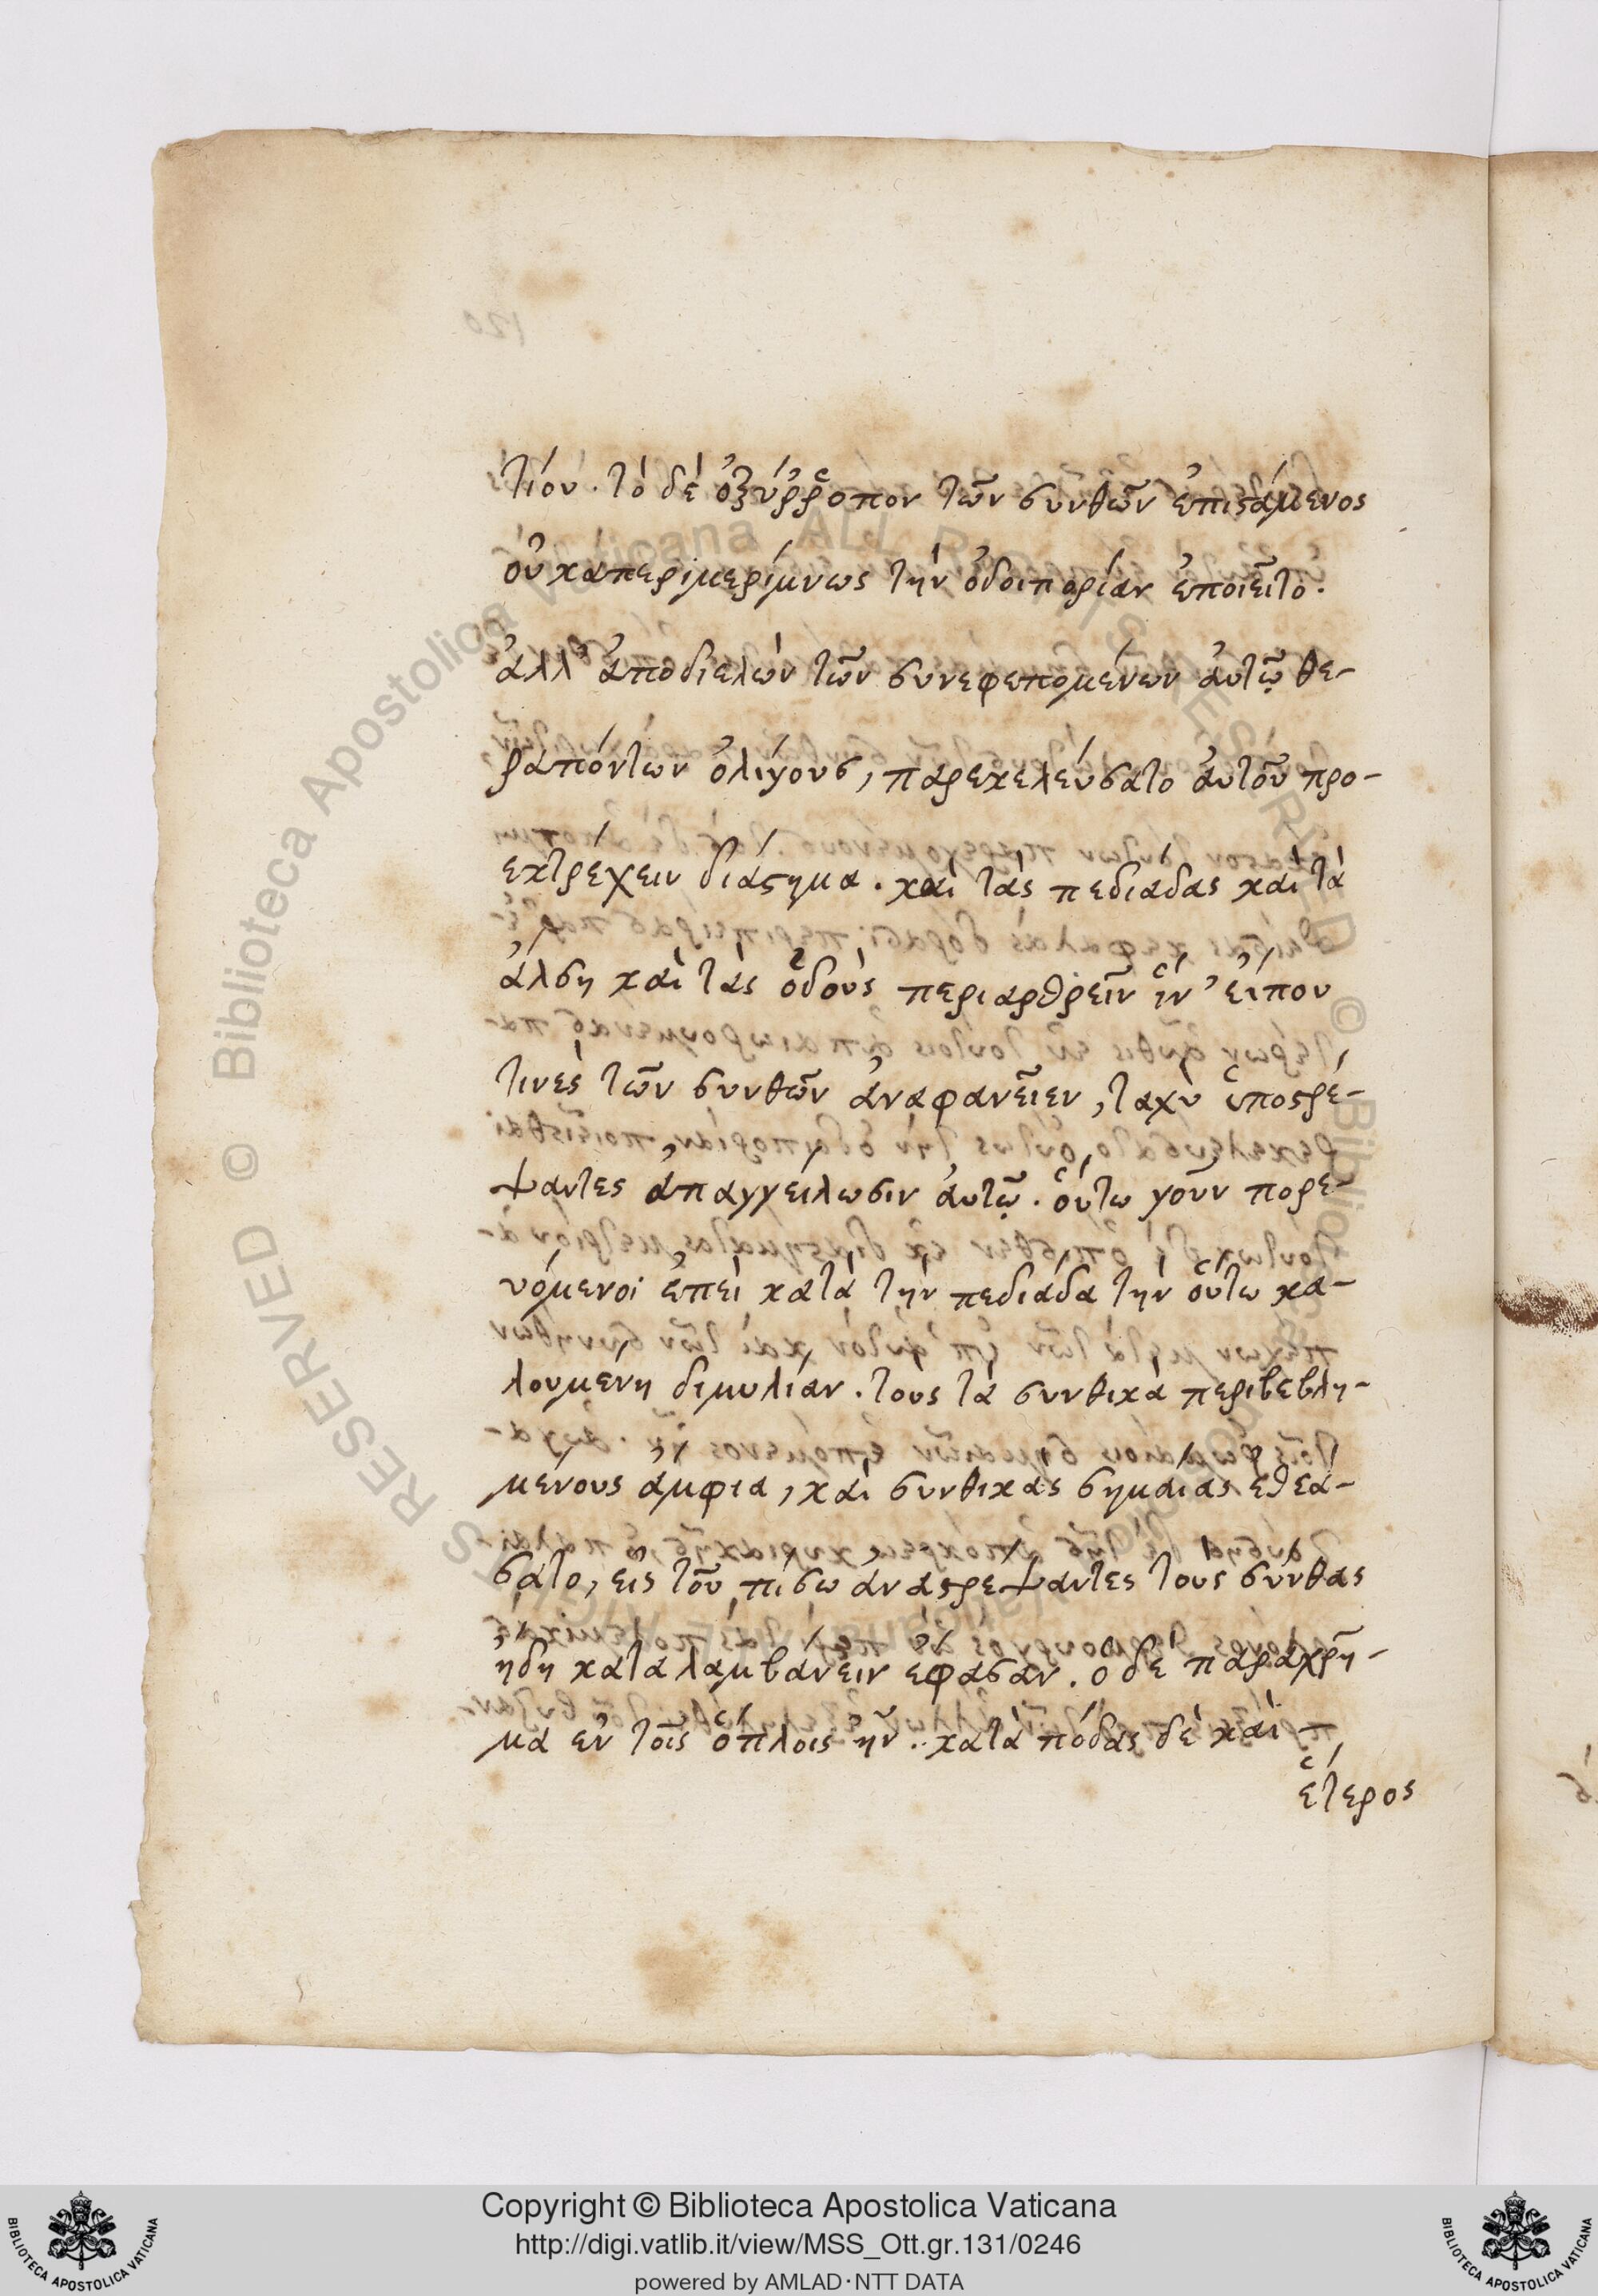 τιόν. τὸ δὲ ὀξύῤῥοπον τῶν συνθῶν ἐπιστάμενος
οὐκ ἀπεριμερίμνως τὴν ὁδοιπορίαν ἐποιεῖτο.
ἀλλ' ἀποδιελὼν τῶν συνεφεπομένων ἀυτῷ θε-
ραπόντων ὀλίγους, παρεκελεύσατο ἀυτοῦ προ-
εκτρέχειν διάστημα. καὶ τὰς πεδιάδας καὶ τὰ
ἄλση καὶ τὰς ὁδοὺς περιαρθρεῖν ἵν' εἴπου
τινὲς τῶν συνθῶν ἀναφανεῖεν, ταχὺ ὑποστρέ-
ψαντες ἀπαγγείλωσιν ἀυτῷ. ὅυτω γοῦν πορε-
υόμενοι ἐπεὶ κατὰ τὴν πεδιάδα τὴν ὅυτω κα-
λουμένη διμυλίαν. τοὺς τὰ συνθικὰ περιβεβλη-
μένους ἄμφια, καὶ συνθικὰς σημαίας ἐθεά-
σατο, εἰς τοῦ πίσω ἀναστρέψαντες τοὺς σύνθας
ἤδη καταλαμβάνειν ἔφασαν. ὁ δὲ παραχρῆ-
μα ἐν τοῖς ὅπλοις ἦν. κατὰ πόδας δὲ καὶ
ἕτερος
Copyright © Biblioteca Apostolica Vaticana
http://digi.vatlib.it/view/MSS_Ott.gr.131/0246
powered by AMLAD·NTT DATA
BIBLIOTECA APOSTOLICA VATICANA
BIBLIOTECA APOSTOLICA VATICANA